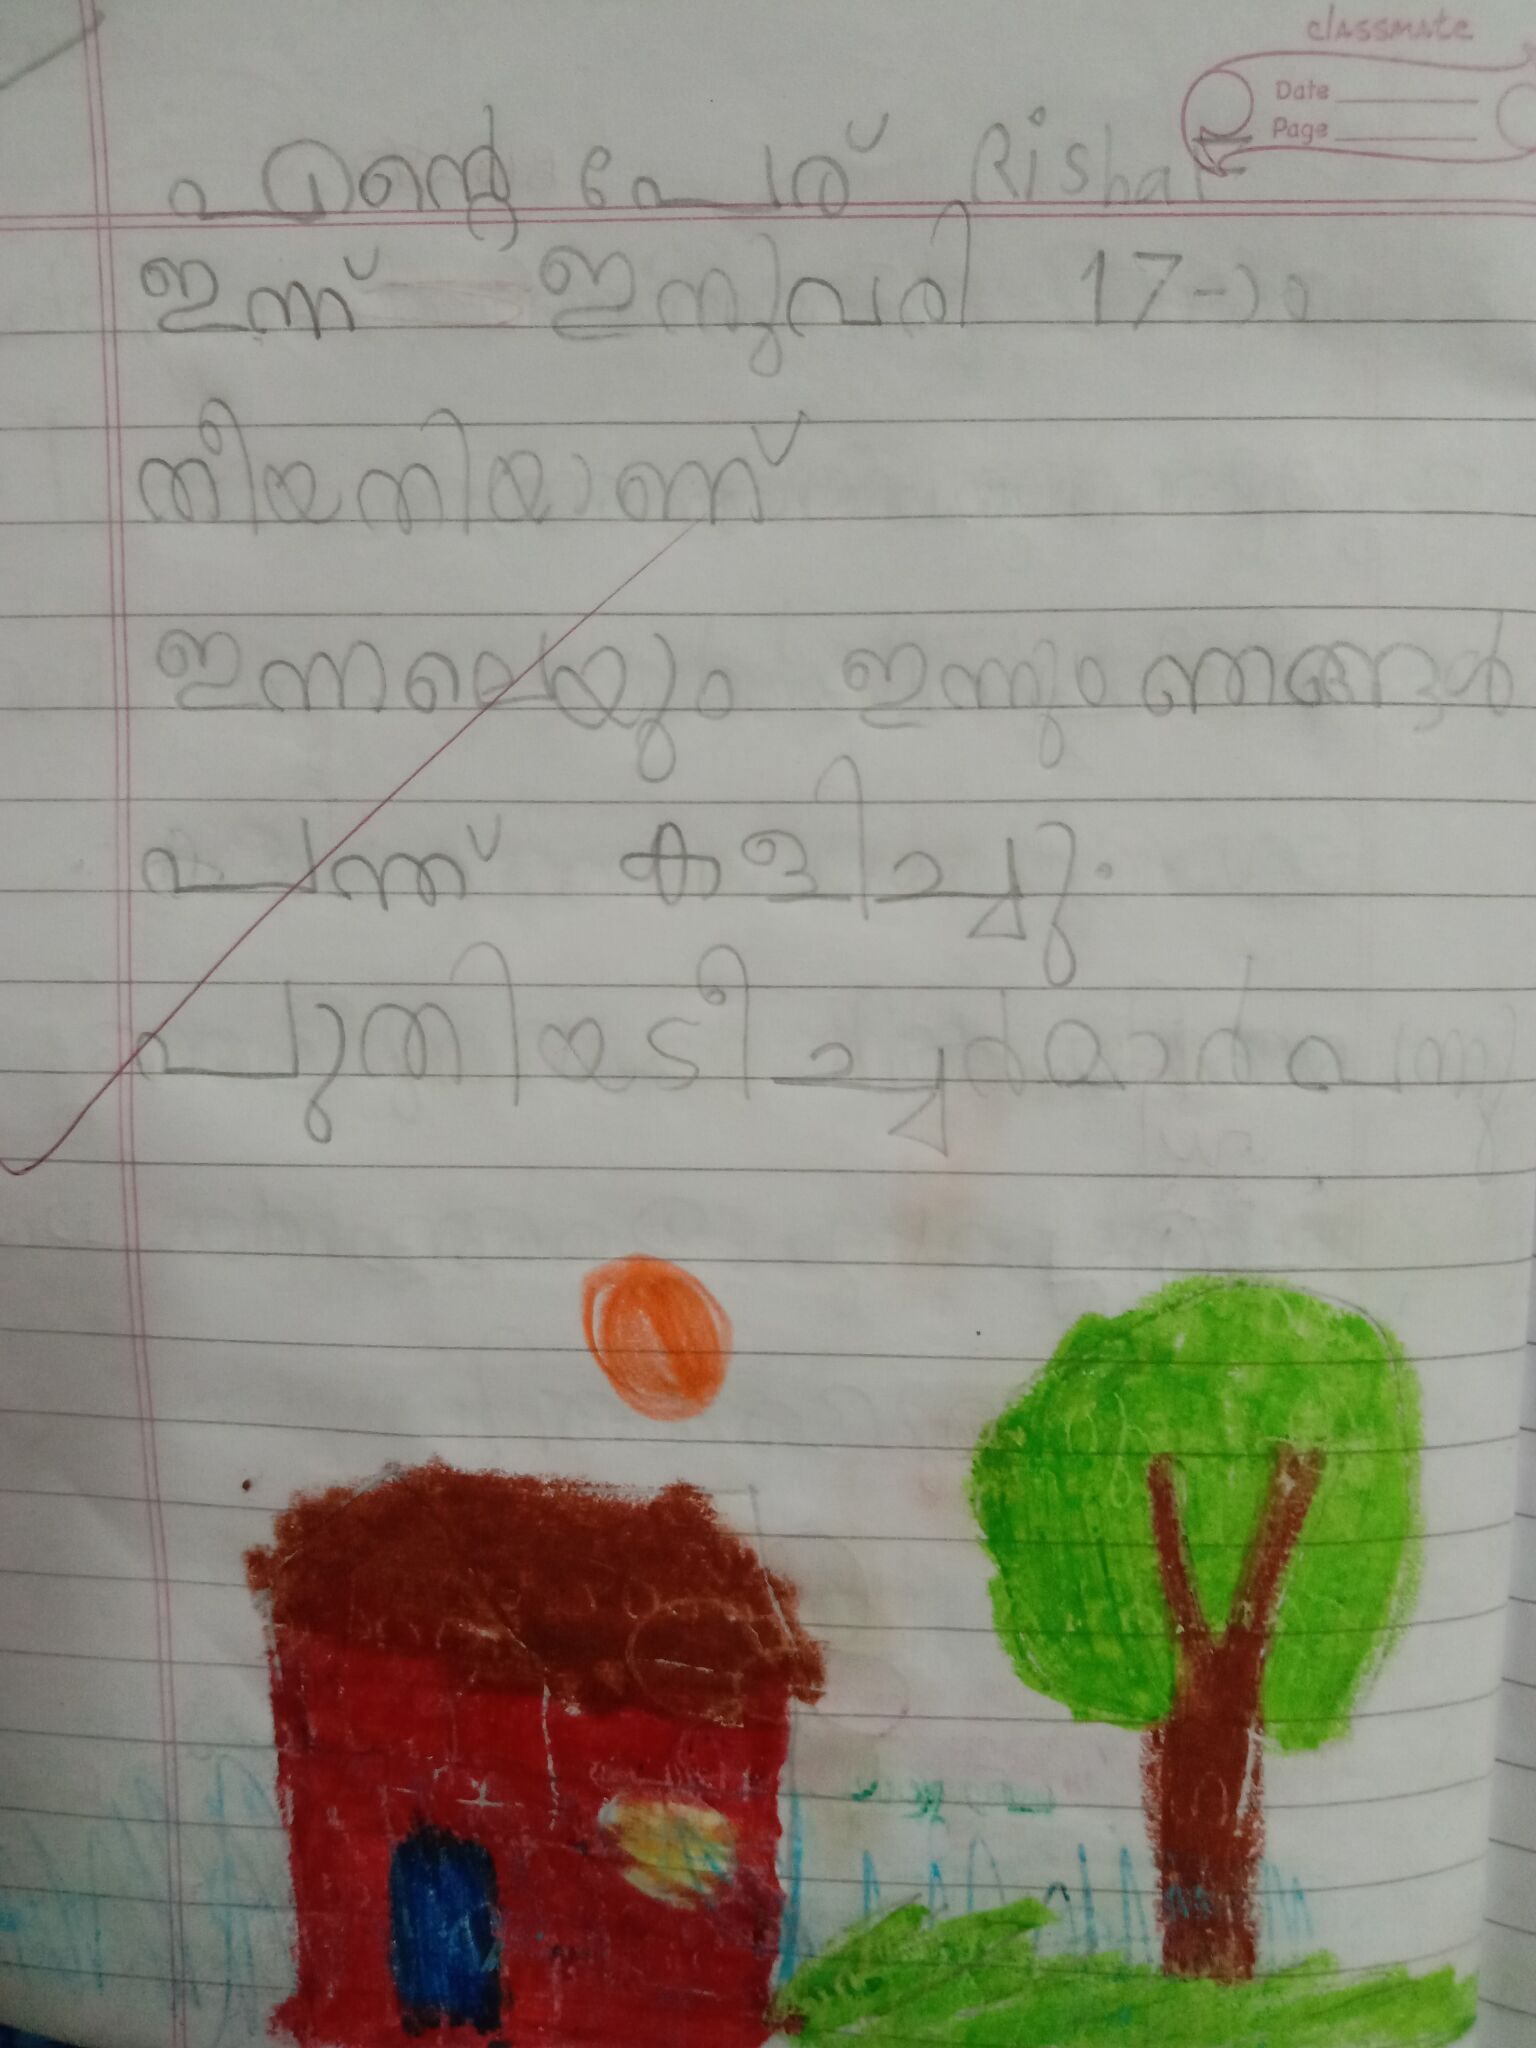 classmate
Date
Page
എന്റെ പേര് Rishal
ഇന്ന് ഇനുവരി 17-ാം
തീയതിയാണ്
ഇന്നലെയും ഇന്നും ഞങ്ങൾ
പന്ത് കളിച്ചു.
പുതിയടീച്ചർ